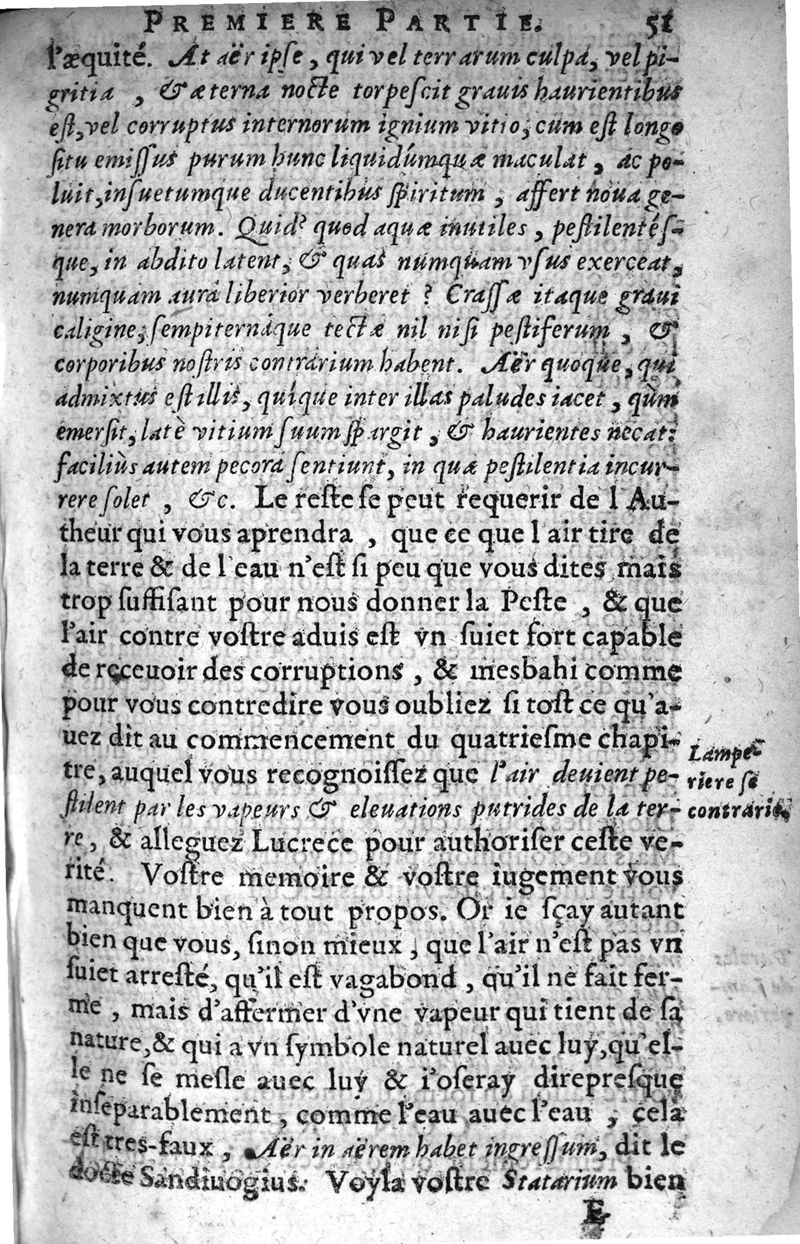 PREMIERE PARTIE. 51
l'æquité. At aër ipſe, qui vel terrarum culpa, vel pi-
gritia, & æterna nocte torpeſcit grauis haurientibus
eſt, vel corruptus internorum ignium vitio, cum eſt longo
ſitu emiſſus purum hunc liquidúmquæ maculat, ac po-
luit, inſuetumque ducentibus ſpiritum, affert noua ge-
nera morborum. Quid? quod aquæ inutiles, peſtilentéſ-
que, in abdito latent, & quas numquam vſus exerceat,
numquam aura liberior verberet? Craſſæ itaque graui
caligine, ſempiternáque tectæ nil niſi peſtiferum, &
corporibus noſtris contrarium habent. Aër quoque, qui
admixtus eſt illis, quíque inter illas paludes iacet, qùm
emerſit, latè vitium ſuum ſpargit, & haurientes necat:
faciliùs autem pecora ſentiunt, in quæ peſtilentia incur-
rere ſolet, &c. Le reſte ſe peut requerir de l'Au-
theur qui vous aprendra, que ce que l'air tire de
la terre & de l'eau n'eſt ſi peu que vous dites mais
trop ſuffiſant pour nous donner la Peſte, & que
l'air contre voſtre aduis eſt vn ſuiet fort capable
de receuoir des corruptions, & mesbahi comme
pour vous contredire vous oubliez ſi toſt ce qu'a-
uez dit au commencement du quatrieſme chapi-
tre, auquel vous recognoiſſez que l'air deuient pe-
ſtilent par les vapeurs & eleuations putrides de la ter-
re, & alleguez Lucrece pour authoriſer ceſte ve-
rité. Voſtre memoire & voſtre iugement vous
manquent bien à tout propos. Or ie ſçay autant
bien que vous, ſinon mieux, que l'air n'eſt pas vn
ſuiet arreſté, qu'il eſt vagabond, qu'il ne fait fer-
me, mais d'affermer d'vne vapeur qui tient de ſa
nature, & qui a vn ſymbole naturel auec luy, qu'el-
le ne ſe meſle auec luy & i'oſeray direpreſque
inſeparablement, comme l'eau auec l'eau, cela
eſt tres-faux, Aër in aërem habet ingreſſum, dit le
docte Sandiuogius. Voyla voſtre Statarium bien
E
Lampe-
riere ſe
contrarie.